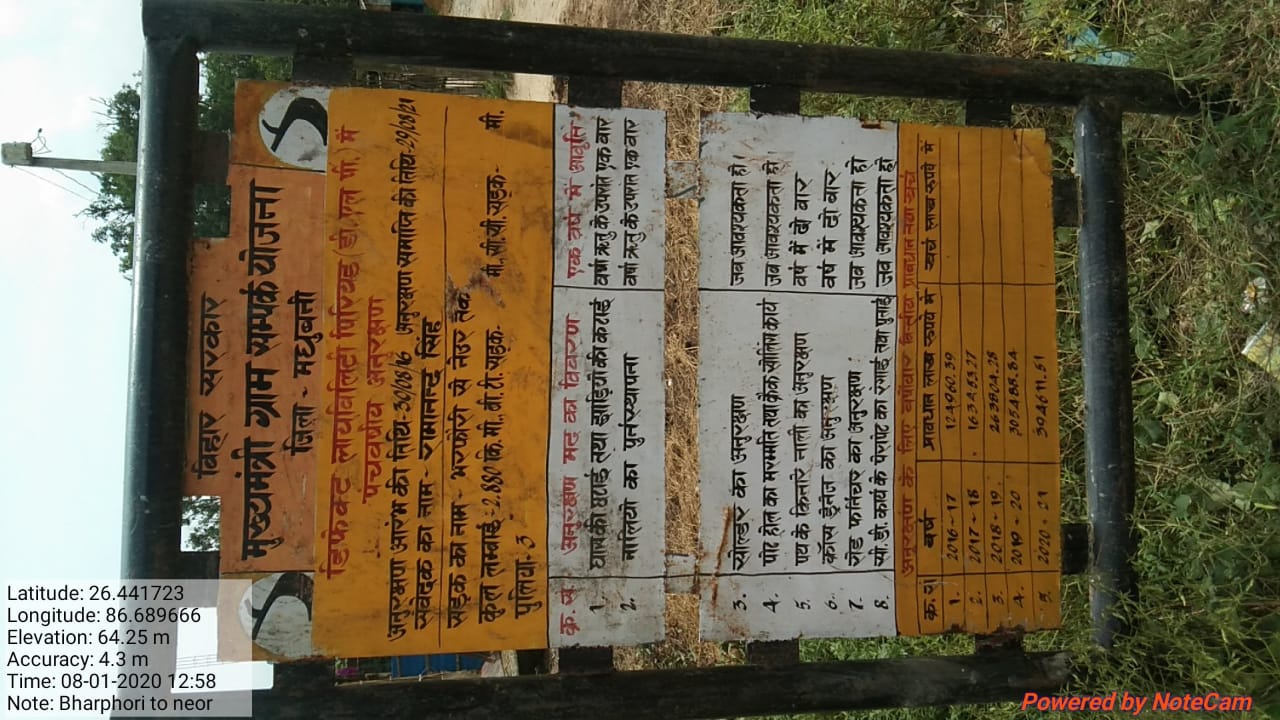 बिहार सरकार
मुख्यमंत्री ग्राम सम्पर्क योजना
जिला - मधुबनी
डिफेक्ट लायबिलिटी पिरियड (डी. एल. पी.) में
पंचवर्षीय अनुरक्षण
अनुरक्षण आरंभ की तिथि- 30/08/16 अनुरक्षण समाप्ति की तिथि- 29/08/21
संवेदक का नाम - रामानन्द सिंह
सड़क का नाम - भरफोरी से नेउर तक
कुल लम्बाई - 2.880 कि.मी., बी.टी. सड़क- मी., सी.सी. सड़क- मी.
पुलिया- 3
क्र. सं. अनुरक्षण मद का विवरण एक वर्ष में आवृति
1. घास की छटाई तथा झाड़ियों की कटाई वर्षा ऋतु के उपरांत एक बार
2. नालियों का पुर्नस्थापना वर्षा ऋतु के उपरांत एक बार
3. सोल्डर का अनुरक्षण जब आवश्यकता हो।
4. पॉट होल का मरम्मति तथा क्रैक सीलिंग कार्य जब आवश्यकता हो।
5. पथ के किनारे नाली का अनुरक्षण वर्ष में दो बार
6. क्रॉस ड्रेनेज का अनुरक्षण वर्ष में दो बार
7. रोड फर्निचर का अनुरक्षण जब आवश्यकता हो
8. सी. डी. कार्य के पैरापेट का रंगाई तथा पुताई जब आवश्यकता हो
अनुरक्षण के लिए वर्षवार वित्तीय प्रावधान तथा खर्च
क्र. सं. वर्ष प्रावधान लाख रुपये में खर्च लाख रुपये में
1. 2016-17 124960.39
2. 2017-18 163453.27
3. 2018-19 263904.25
4. 2019-20 305488.84
5. 2020-21 394611.51
Latitude: 26.441723
Longitude: 86.689666
Elevation: 64.25 m
Accuracy: 4.3 m
Time: 08-01-2020 12:58
Note: Bharphori to neor
Powered by NoteCam